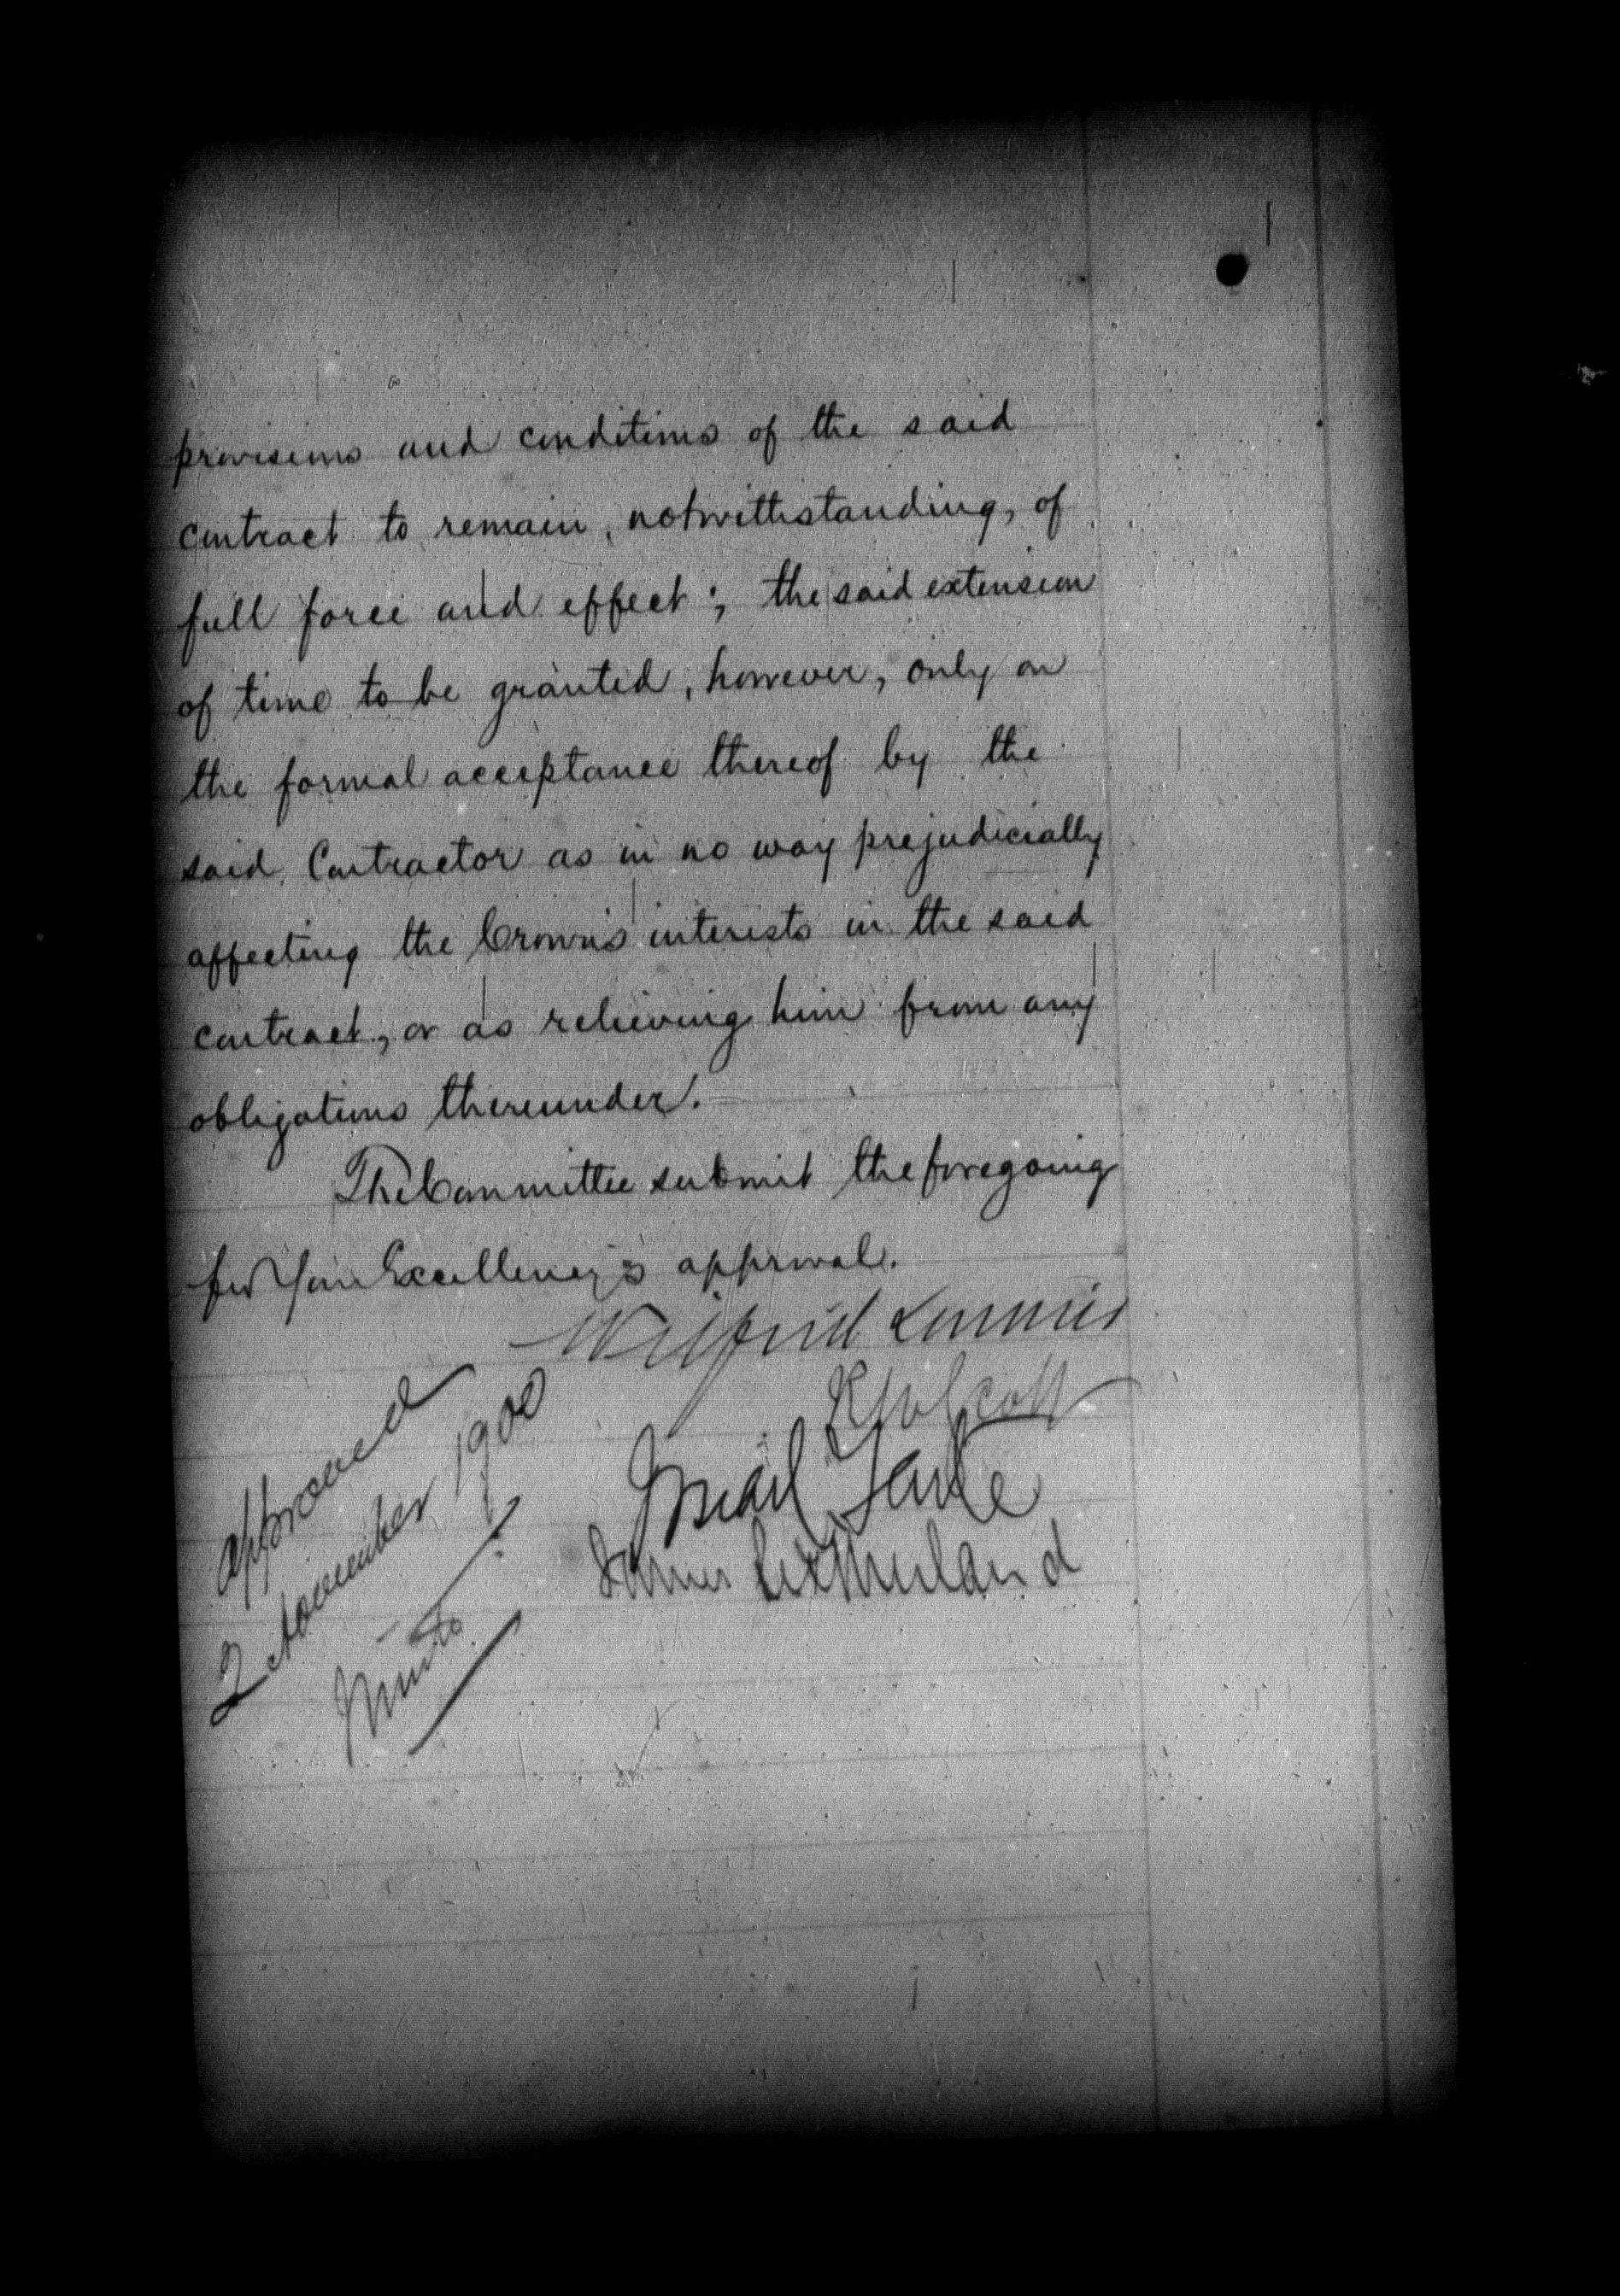 provisions and conditions of the said
contract to remain, notwithstanding, of
full force and effect; the said extension
of time to be granted, however, only on
the formal acceptance thereof by the
said Contractor as in no way prejudicially
affecting the Crown's interests in the said
contract, or as relieving him from any
obligations thereunder.
The Committee submit the foregoing
for Your Excellency's approval.
Wilfrid Laurier
RW Scott
Israel Tarte
James Sutherland
approved
2 November 1900
Minto